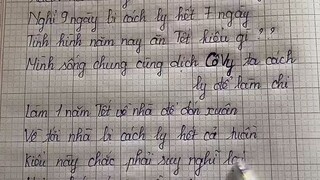 Nghỉ 9 ngày bị cách ly hết 7 ngày
Tình hình năm nay ăn Tết kiểu gì ? ?
Mình sống chung cùng dịch CôVy ta cách
ly để làm chi
Làm 1 năm Tết về nhà để đón xuân
Về tới nhà bị cách ly hết cả tuần
Kiểu này chắc phải suy nghĩ lạ